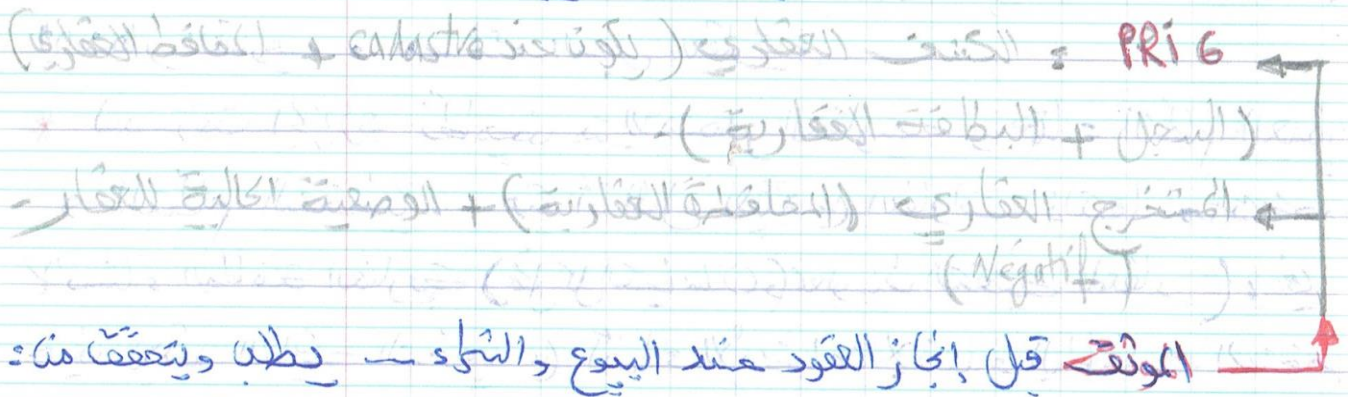 PRi 6 : الكشف العقاري (يكون عند cadastre + المحافظ العقاري)
(السجل + البطاقة العقارية).
المستخرج العقاري (المحافظة العقارية) + الوضعية الحالية للعقار -
(Négatif)
الموثق قبل إنجاز العقود عند البيوع والشراء - يطلب ويتحقق من :